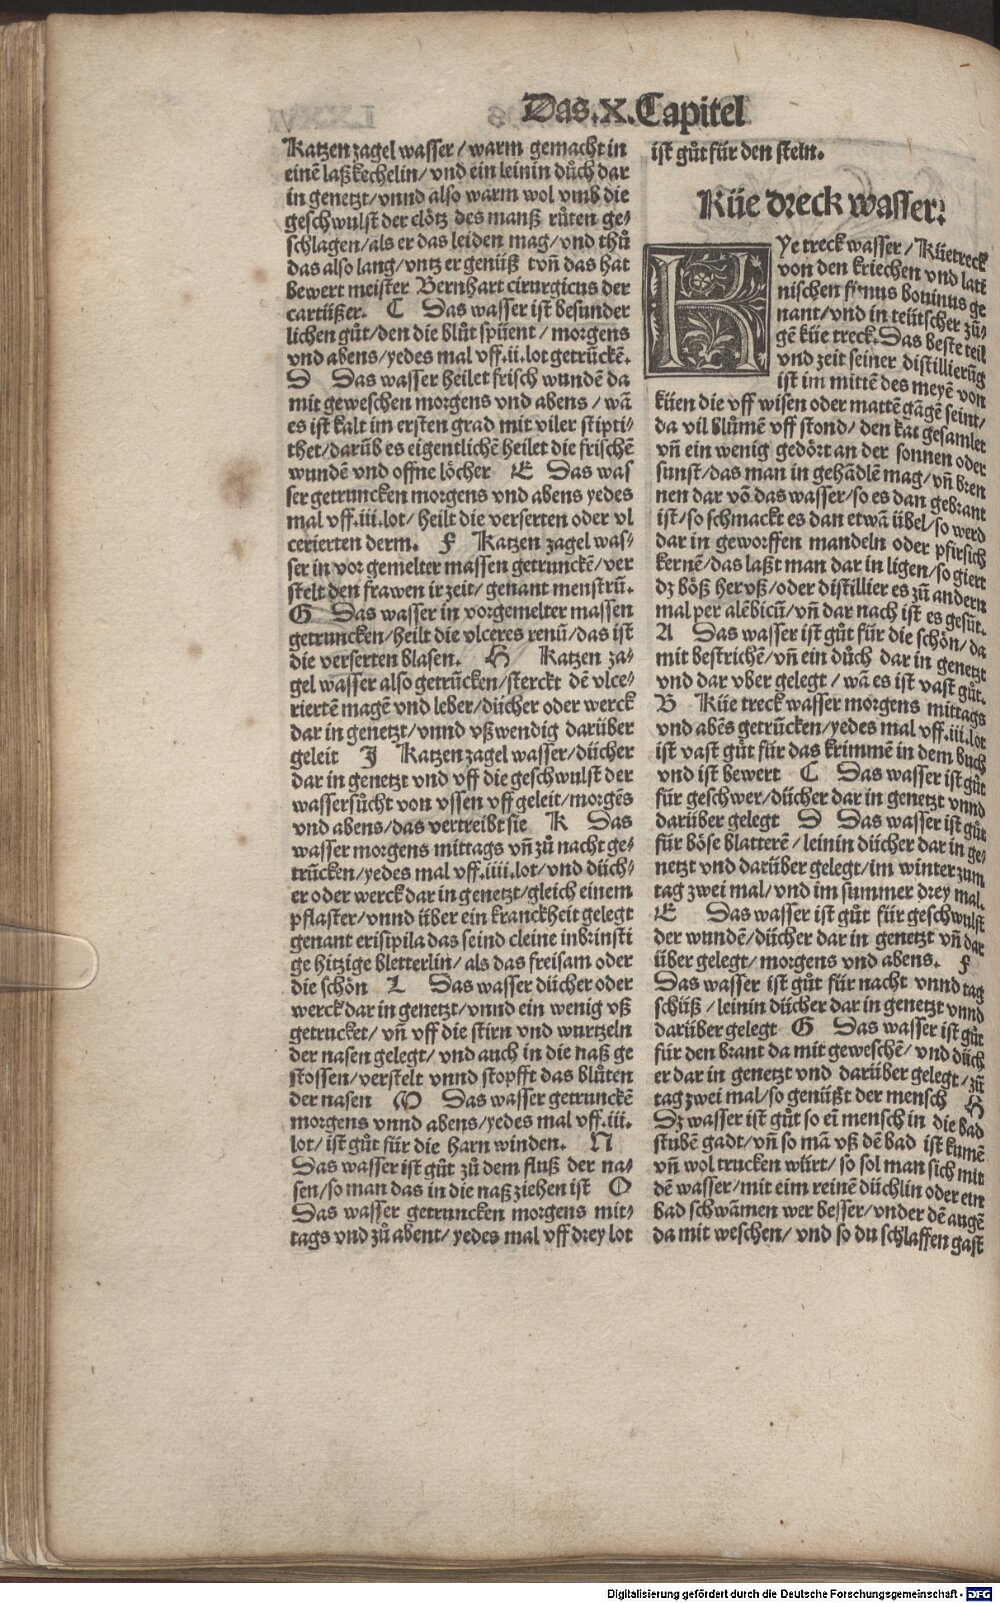 Das.X.Capitel
Katzen zagel wasser/warm gemacht in
einē laßkechelin/vnd ein leinin důch dar
in genetzt/vnnd also warm wol vmb die
geschwulst der clötz des manß růten ge-
schlagen/als er das leiden mag/vnd thů
das also lang/vntz er genüßt vn̄ das hat
bewert meister Bernhart cirurgicus der
cartüßer. C Das wasser ist besunder
lichen gůt/den die blůt spüent/morgens
vnd abens/yedes mal vff.ii.lot getrūckē.
D Das wasser heilet frisch wundē da
mit geweschen morgens vnd abens/wā
es ist kalt im ersten grad mit viler stipti-
thet/darüb es eigentlichē heilet die frischē
wundē vnd offne löcher E Das was
ser getruncken morgens vnd abens yedes
mal vff.iii.lot/heilt die verserten oder vl
cerierten derm. F Katzen zagel was-
ser in vor gemelter massen getrunckē/ver
stelt den frawen ir zeit/genant menstrū.
G Das wasser in vorgemelter massen
getruncken/heilt die vlceres renū/das ist
die verserten blasen. H Katzen za-
gel wasser also getrūcken/sterckt dē vlce-
riertē magē vnd leber/dücher oder werck
dar in genetzt/vnnd vßwendig darüber
geleit J Katzen zagel wasser/dücher
dar in genetzt vnd vff die geschwulst der
wassersůcht von vssen vff geleit/morgēs
vnd abens/das vertreibt sie K Das
wasser morgens mittags vn̄ zů nacht ge-
trūcken/yedes mal vff.iiii.lot/vnd düch-
er oder werck dar in genetzt/gleich einem
pflaster/vnnd über ein kranckheit gelegt
genant erisipila das seind cleine inbrinsti
ge hitzige bletterlin/als das freisam oder
die schön L Das wasser dücher oder
werck dar in genetzt/vnnd ein wenig vß
getrucket/vn̄ vff die stirn vnd wurtzeln
der nasen gelegt/vnd auch in die naß ge
stossen/verstelt vnnd stopfft das blůten
der nasen M Das wasser getrunckē
morgens vnnd abens/yedes mal vff.iii.
lot/ist gůt für die harn winden. N
Das wasser ist gůt zů dem fluß der na-
sen/so man das in die naß ziehen ist O
Das wasser getruncken morgens mit-
tags vnd zů abent/yedes mal vff drey lot
ist gůt für den stein.
Küe dreck wasser.
KYe treck wasser/Küetreck
von den kriechen vnd latē
nischen fimus bouinus ge
nant/vnd in teütscher zů-
gē küe treck.Das beste teil
vnd zeit seiner distillierūg
ist im mittē des meyē von
küen die vff wisen oder mattē gāgē seint/
da vil blůmē vff stond/den kat gesamlet
vn̄ ein wenig gedört an der sonnen oder
sunst/das man in gehādlē mag/vn̄ bren
nen dar vō das wasser/so es dan gebrant
ist/so schmackt es dan etwā übel/so werd
dar in geworffen mandeln oder pfirsich
kernē/das laßt man dar in ligen/so giert
dz böß her vß/oder distillier es zů andern
mal per alēbicū/vn̄ dar nach ist es gesūt.
A Das wasser ist gůt für die schön/da
mit bestrichē/vn̄ ein důch dar in genetzt
vnd dar vber gelegt/wā es ist vast gůt.
B Küe treck wasser morgens mittags
vnd abēs getrūcken/yedes mal vff.iii.lot
ist vast gůt für das krimmē in dem buch
vnd ist bewert C Das wasser ist gůt
für geschwer/dücher dar in genetzt vnnd
darüber gelegt D Das wasser ist gůt
für böse blatterē/leinin dücher dar in ge-
netzt vnd darüber gelegt/im winter zum
tag zwei mal/vnd im summer drey mal.
E Das wasser ist gůt für geschwulst
der wundē/dücher dar in genetzt vn̄ dar
über gelegt/morgens vnd abens. F
Das wasser ist gůt für nacht vnnd tag
schüß/leinin dücher dar in genetzt vnnd
darüber gelegt G Das wasser ist gůt
für den brant da mit geweschē/vnd düch
er dar in genetzt vnd darüber gelegt/zů
tag zwei mal/so genüßt der mensch H
Dz wasser ist gůt so eī mensch in die bad
stubē gadt/vn̄ so mā vß dē bad ist kumē
vn̄ wol trucken würt/so sol man sich mit
dē wasser/mit eim reinē düchlin oder ein
bad schwāmen wer besser/vnder dē augē
da mit weschen/vnd so du schlaffen gast
Digitalisierung gefördert durch die Deutsche Forschungsgemeinschaft - DFG